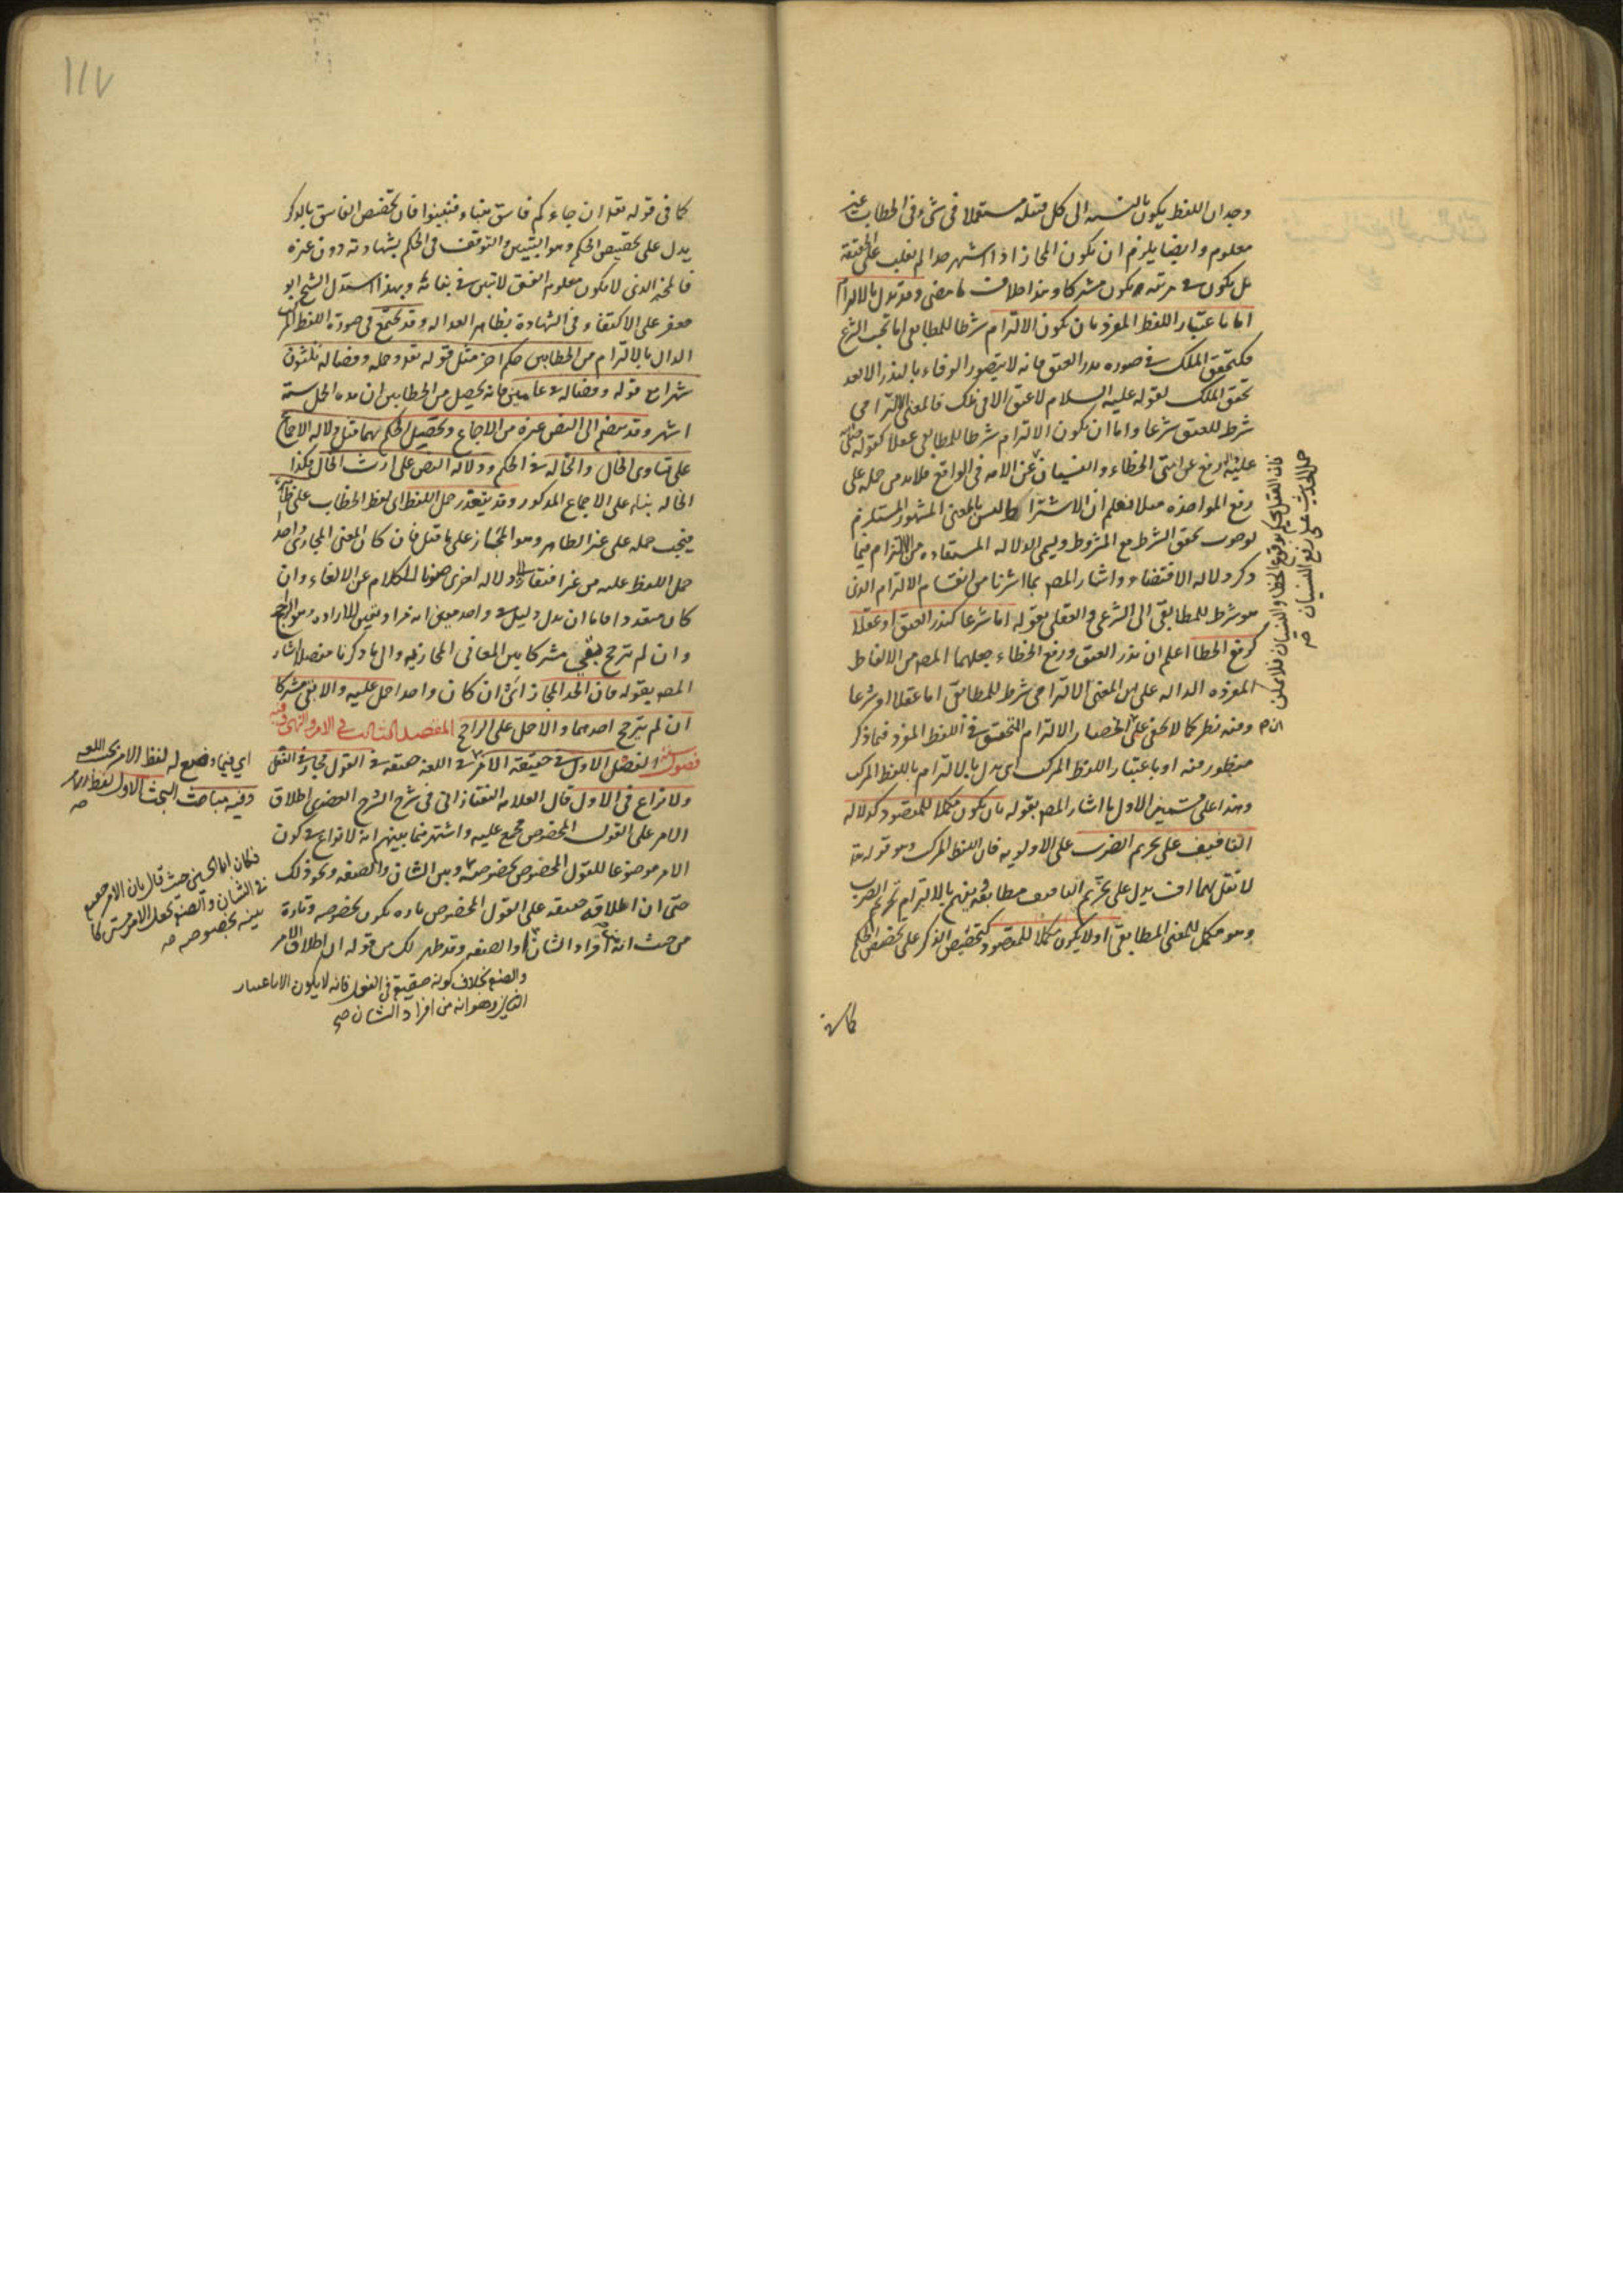 وجدان اللفظ يكون بالنسبه الى كل فتعله مستعملا فى شئ وفى الخطاب غير
معلوم وايضا يلزم ان يكون المجاز اذا اشتهر صدا لم يغلب على الحقيقة
بل يكون فى مرتبه يكون مشتركا وهذا خلاف ما مضى وقد يدل بالالتزام
اما باعتبار اللفظ المفرد بان يكون الالتزام شرطا للمطابقى اما بحسب الشرع
فكتحقق الملك فى صوره نذر العتق فانه لا يتصور الوفاء بالنذر الا بعد
تحقق الملك لقوله عليه السلام لا عتق الا فى ملك فالمعنى الالتزامى
شرط للعتق شرعا واما ان يكون الالتزام شرطا للمطابقى عقلا كقوله
عليه رفع عن امتى الخطاء والنسيان عن الامه فى الواقع فلا بد من حمله على
رفع المواخذه فعلم ان الاشتراط ليس بالمعنى المشهور المستلزم
لوجوب تحقق الشرط مع المشروط ويسمى الدلاله المستفاده من الالتزام فيما
ذكر دلاله الاقتضاء واشار المص بما اشرنا من انقسام الالتزام الذى
هو شرط للمطابقى الى الشرعى والعقلى بقوله اما شرعا كنذر العتق او عقلا
كرفع الخطا اعلم ان نذر العتق ورفع الخطاء جعلهما المص من الالفاظ
المفرده الداله على ان المعنى الالتزامى شرط للمطابقى اما عقلا او شرعا
وفيه نظر كما لا يخفى على انحصار الالتزام المتحقق فى اللفظ المفرد فيما ذكر
منظور فيه او باعتبار اللفظ المركب اى يدل بالالتزام باللفظ المركب
وهذا على قسمين الاول ما اشار المص بقوله بان يكون مكملا للمقصود كدلاله
التافيف على تحريم الضرب على الاولويه فان اللفظ المركب وهو قوله تعا
لا تقل لهما اف يدل على تحريم التافيف مطابقه ويفهم بالالتزام تحريم الضرب
وهو مكمل للمعنى المطابقى او لا يكون مكملا للمقصود كتخصيص الذكر على تخصيص الحكم
كما فى
فان العقل يحكم بوقوع الخطا والنسيان فلا يمكن
حمل الحديث على رفع النسيان صح
١١٧
كما فى قوله تعا ان جاءكم فاسق بنباء فتبينوا فان تخصيص الفاسق بالذكر
يدل على تخصيص الحكم وهو التبين والتوقف فى الحكم بشهادته دون غيره
فالمخبر الذى لا يكون معلوم الفسق لا تبين فى بنائه وبهذا استدل الشيخ ابو
جعفر على الاكتفاء فى الشهادة بظاهر العداله وقد يجتمع فى صورة اللفظ المركب
الدال بالالتزام من الخطابين حكم اخر مثل قوله تعا وحمله وفصاله ثلثون
شهرا مع قوله وفصاله فى عامين فانه يحصل من الخطابين ان مده الحمل ستة
اشهر وقد ينضم الى النص غيره من الاجماع وتحصيل الحكم بهما مثل دلاله الاجماع
على تساوى الخال والخاله فى الحكم ودلالة النص على ارث الخال فكذا
الخاله بناء على الاجماع المذكور وقد يتعذر حمل اللفظ اى لفظ الخطاب على ظاهره
فيجب حمله على غير الظاهر وهو المجاز على ما قيل فان كان المعنى المجازى واحدا
حمل اللفظ عليه من غير افتقار الى دلاله اخرى صونا للكلام عن الالغاء وان
كان متعددا فاما ان يدل دليل على واحد معين انه مراد فتعين للاراده وهو الراجح
وان لم يترجح بقى مشتركا بين المعانى المجازيه والى ما ذكرنا مفصلا اشار
المص بقوله فان اتحد المجاز اى ان كان واحدا حمل عليه والا بقى مشتركا
ان لم يترجح احدهما والا حمل على الراجح المقصد الثالث فى الامر والنهى وفيه
فصول الفصل الاول فى حقيقة الامر فى اللغه حقيقه فى القول مجاز فى الفعل
ولا نزاع فى الاول قال العلامه التفتازانى فى شرح الشرح العضدى اطلاق
الامر على القول المخصوص مجمع عليه واشتهر فيما بينهم انه لا نزاع فى كون
الامر موضوعا للقول المخصوص بخصوصه وبين الشان والصفه ونحو ذلك
حتى ان اطلاقه حقيقه على القول المخصوص تاره يكون بخصوصه وتارة
من حيث انه من افراد الشان او الصفه وقد ظهر لك من قوله ان اطلاق الامر
اى فيما وضع له لفظ الامر بحسب اللغه
وفيه مباحث البحث الاول لفظ الامر
صه
فكان ابا الحسين حيث قال بان الامر جميع
فى الشان والصفه يجعل الامر مشتركا
بينه بخصوصه صه
والصفه بخلاف كونه حقيقه فى القول فانه لا يكون الا باعتبار
الثانى وهو انه من افراد الشان صح